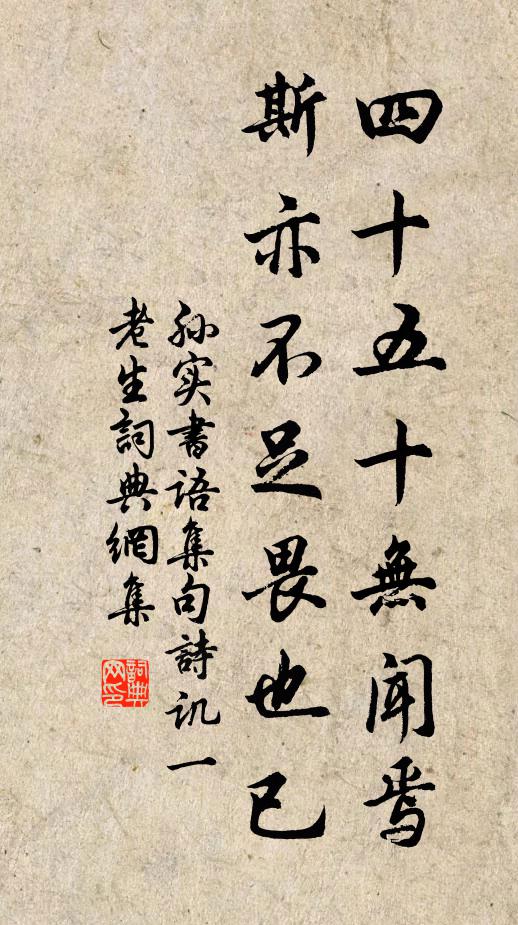 四十五十無聞焉
斯亦不足畏也已
孫实書语集句詩讥一
老生詞典網集
詞典
网印